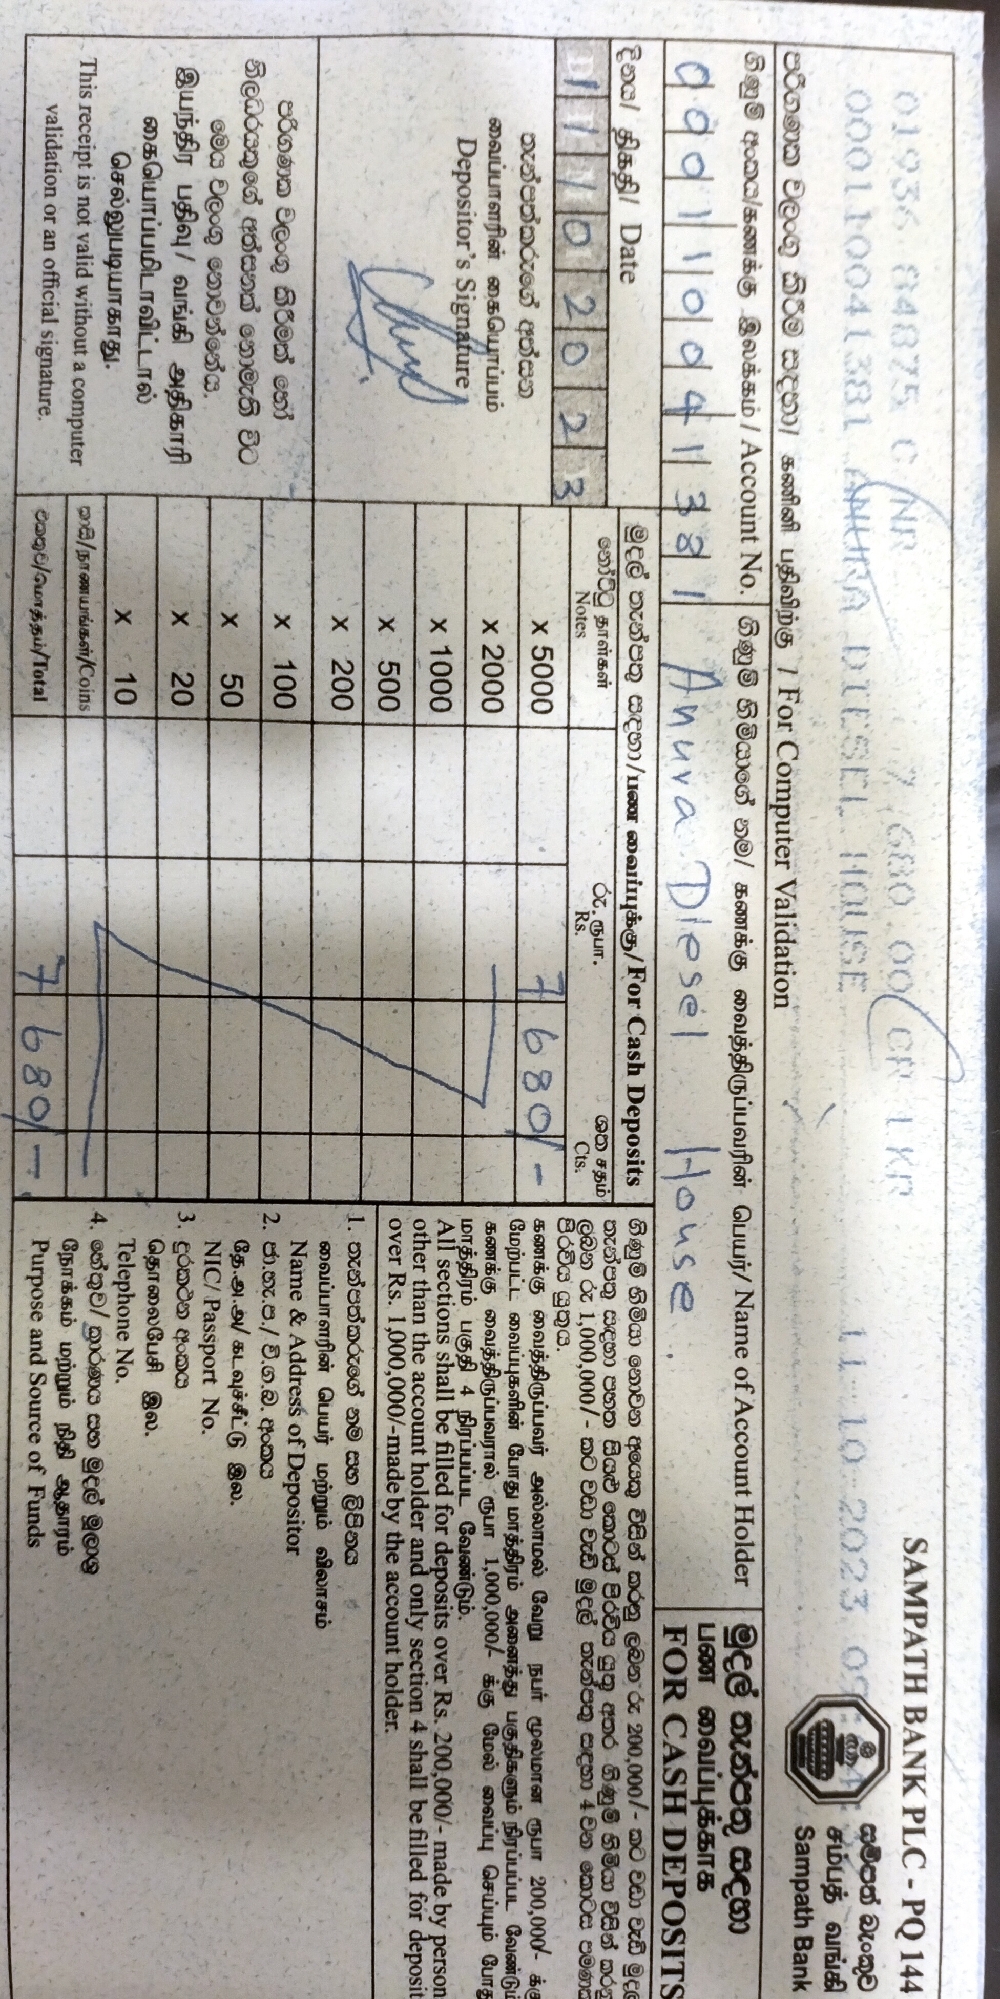 SAMPATH BANK PLC - PQ 144
සම්පත් බැංකුව
சம்பத் வங்கி
Sampath Bank
01936 84875 CNR 7,680.00 CR LKR
000110041381 ANURA DIESEL HOUSE 11-10-2023
පරිගණක වලංගු කිරීම සඳහා/ கணினி பதிவிற்கு / For Computer Validation
ගිණුම් අංකය/கணக்கு இலக்கம் / Account No.
ගිණුම් හිමියාගේ නම/ கணக்கு வைத்திருப்பவரின் பெயர்/ Name of Account Holder
මුදල් තැන්පතු සඳහා
பண வைப்புக்காக
FOR CASH DEPOSITS
000110041381
Anura Diesel House
දිනය/ திகதி/ Date
11102023
තැන්පත්කරුගේ අත්සන
வைப்பாளரின் கையொப்பம்
Depositor's Signature
පරිගණක වලංගු කිරීමක් හෝ
නිලධරයකුගේ අත්සනක් නොමැති විට
මෙය වලංගු නොවන්නේය.
இயந்திர பதிவு/ வங்கி அதிகாரி
கையொப்பமிடாவிட்டால்
செல்லுபடியாகாது.
This receipt is not valid without a computer
validation or an official signature.
මුදල් තැන්පතු සඳහා/பண வைப்புக்கு/For Cash Deposits
නෝට්ටු தாள்கள்
Notes
රු. ரூபா.
Rs.
ශත சதம்
Cts.
x 5000 7680/-
x 2000
x 1000
x 500
x 200
x 100
x 50
x 20
x 10
කාසි/நாணயங்கள்/Coins
එකතුව/மொத்தம்/Total 7680/-
ගිණුම් හිමියා නොවන අයෙකු විසින් කරනු ලබන රු 200,000/- කට වඩා වැඩි මුදල්
තැන්පතු සඳහා පහත සියළු කොටස් පිරවිය යුතු අතර ගිණුම් හිමියා විසින් කරනු
ලබන රු 1,000,000/- කට වඩා වැඩි මුදල් තැන්පතු සඳහා 4 වන කොටස පමණක්
පිරවිය යුතුය.
கணக்கு வைத்திருப்பவர் அல்லாமல் வேறு நபர் மூலமான ரூபா 200,000/- க்கு
மேற்பட்ட வைப்புகளின் போது மாத்திரம் அனைத்து பகுதிகளும் நிரப்பப்பட வேண்டும்
கணக்கு வைத்திருப்பவரால் ரூபா 1,000,000/- க்கு மேல் வைப்பு செய்யும் போது
மாத்திரம் பகுதி 4 நிரப்பப்பட வேண்டும்.
All sections shall be filled for deposits over Rs. 200,000/- made by person
other than the account holder and only section 4 shall be filled for deposit
over Rs. 1,000,000/-made by the account holder.
1. තැන්පත්කරුගේ නම සහ ලිපිනය
வைப்பாளரின் பெயர் மற்றும் விலாசம்
Name & Address of Depositor
2. ජා.හැ.ප./ වි.ග.බ. අංකය
தே.அ.அ/ கடவுச்சீட்டு இல.
NIC/ Passport No.
3. දුරකථන අංකය
தொலைபேசி இல.
Telephone No.
4. හේතුව/ කාරණය සහ මුදල් මූලාශ්‍ර
நோக்கம் மற்றும் நிதி ஆதாரம்
Purpose and Source of Funds